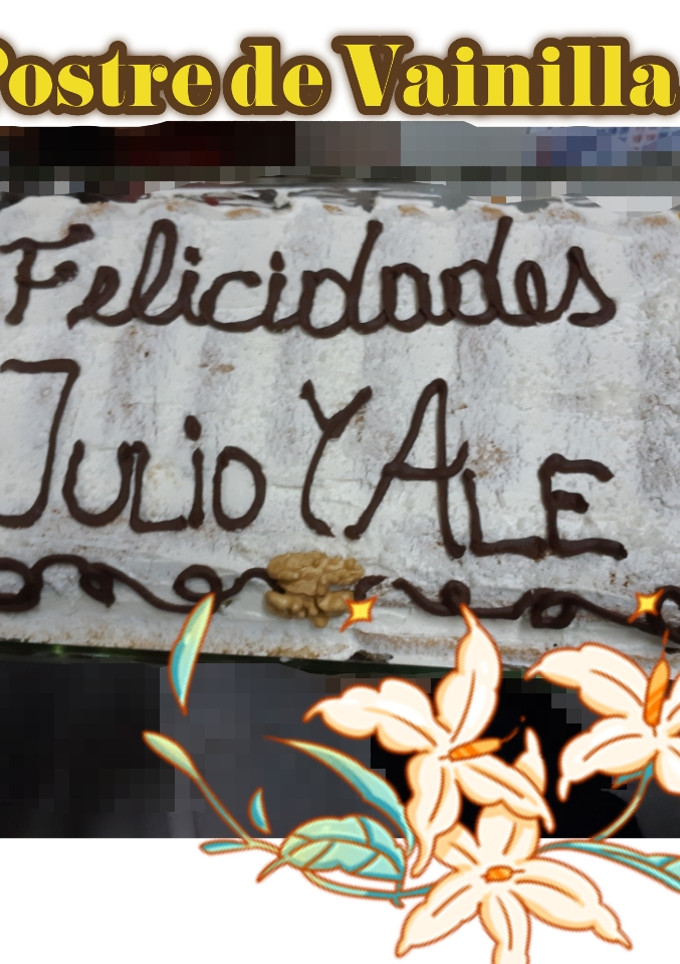 Postre de Vainilla
Felicidades
JULIO Y ALE